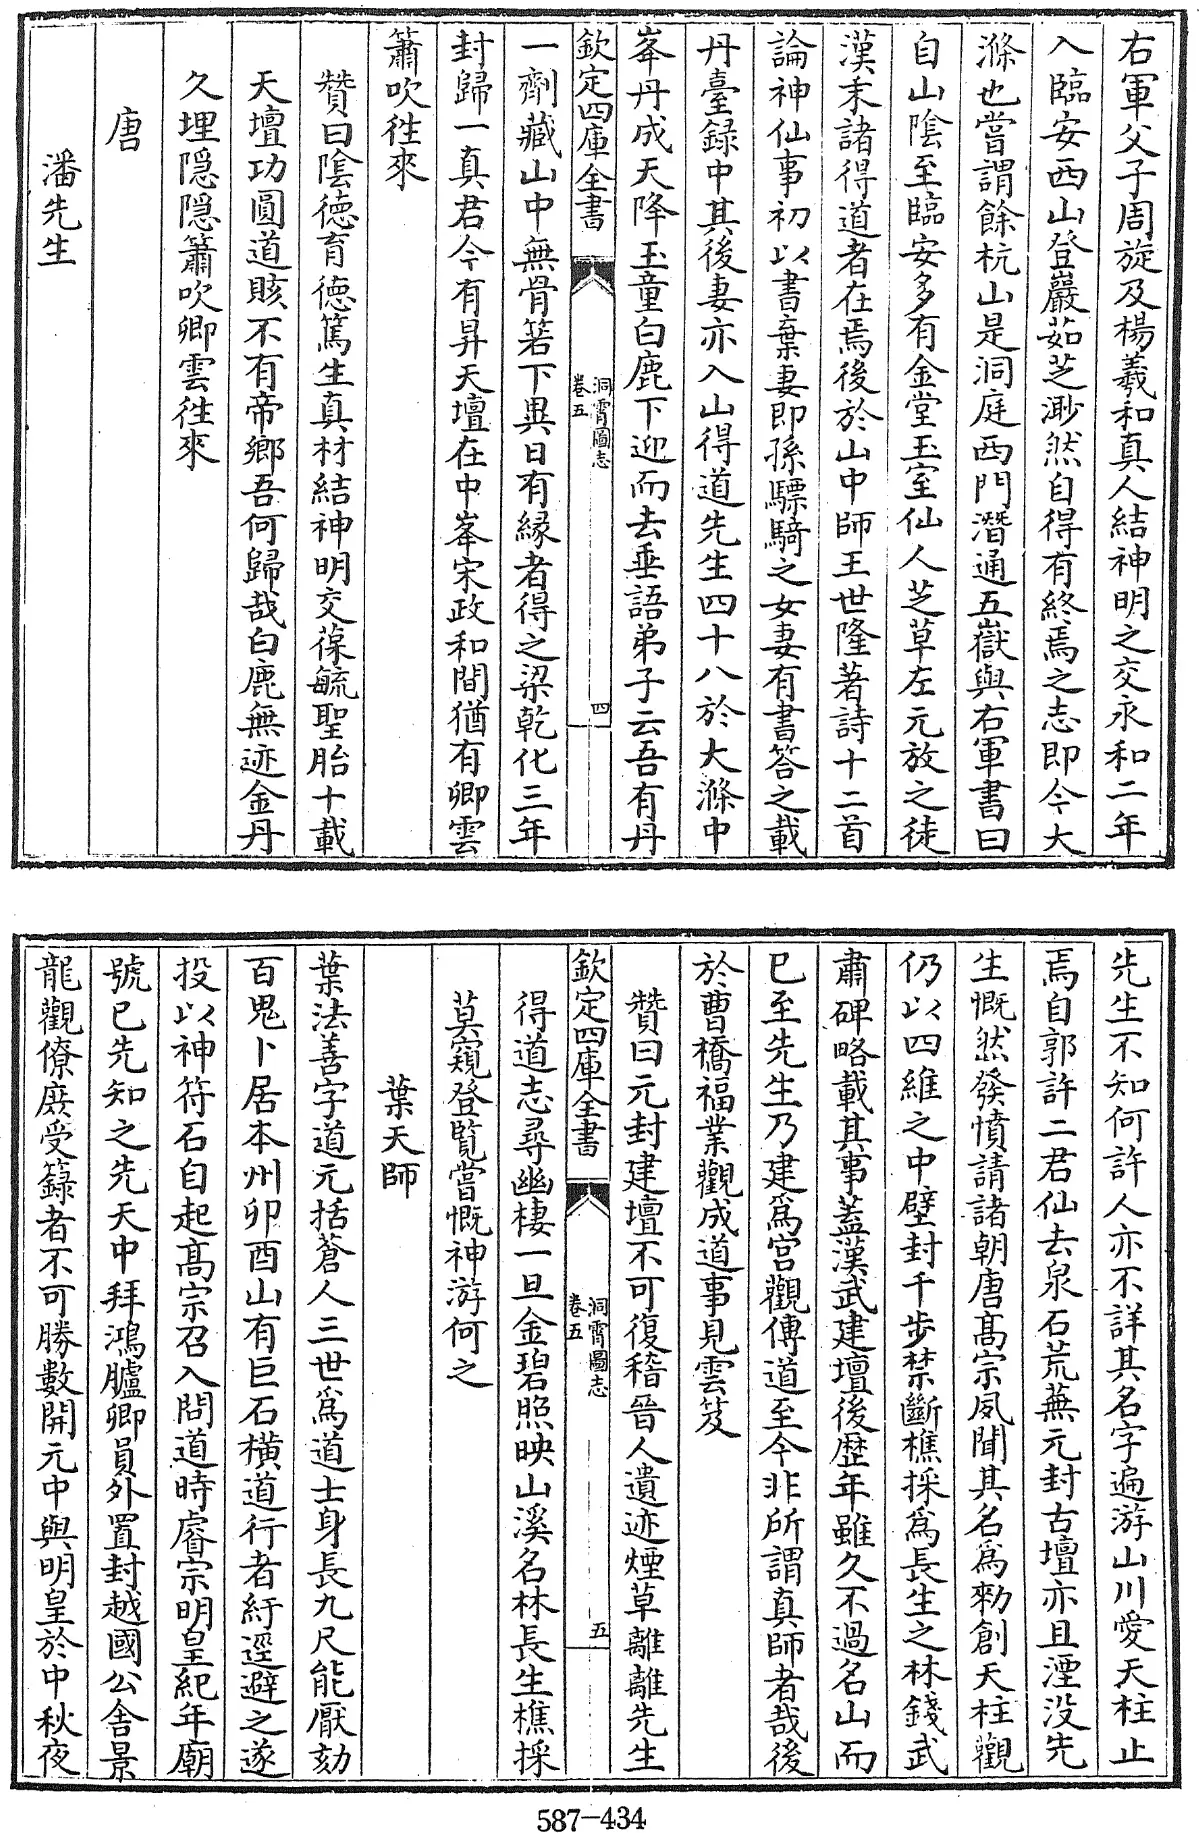 右軍父子周旋及楊羲和真人結神明之交永和二年
入臨安西山登巖茹芝渺然自得有終焉之志即今大
滌也嘗謂餘杭山是洞庭西門潛通五嶽與右軍書曰
自山隂至臨安多有金堂玉室仙人芝草左元放之徒
漢末諸得道者在焉後於山中師王世隆著詩十二首
論神仙事初以書棄妻即孫驃騎之女妻有書答之載
丹臺録中其後妻亦入山得道先生四十八於大滌中
峯丹成天降玉童白鹿下迎而去垂語弟子云吾有丹
欽定四庫全書
洞霄圖志
卷五
四
一劑藏山中無骨箬下異日有縁者得之梁乾化三年
封歸一真君今有昇天壇在中峯宋政和間猶有卿雲
簫吹徃來
贊曰隂徳育徳篤生真材結神明交葆毓聖胎十載
天壇功圓道賅不有帝鄉吾何歸哉白鹿無迹金丹
久埋隠隠簫吹卿雲徃來
唐
潘先生
先生不知何許人亦不詳其名字遍游山川愛天柱止
焉自郭許二君仙去泉石荒蕪元封古壇亦且湮没先
生慨然發憤請諸朝唐髙宗夙聞其名為勅創天柱觀
仍以四維之中壁封千步禁斷樵採為長生之林錢武
肅碑略載其事蓋漢武建壇後歴年雖久不過名山而
已至先生乃建為宫觀傳道至今非所謂真師者哉後
於曹橋福業觀成道事見雲笈
贊曰元封建壇不可復稽晉人遺迹煙草離離先生
欽定四庫全書
洞霄圖志
卷五
五
得道志尋幽棲一旦金碧照映山溪名林長生樵採
莫窺登覧嘗慨神游何之
葉天師
葉法善字道元括蒼人三世為道士身長九尺能厭劾
百鬼卜居本州卯酉山有巨石横道行者紆逕避之遂
投以神符石自起髙宗召入問道時睿宗明皇紀年廟
號已先知之先天中拜鴻臚卿員外置封越國公舎景
龍觀僚庶受籙者不可勝數開元中與明皇於中秋夜
587-434